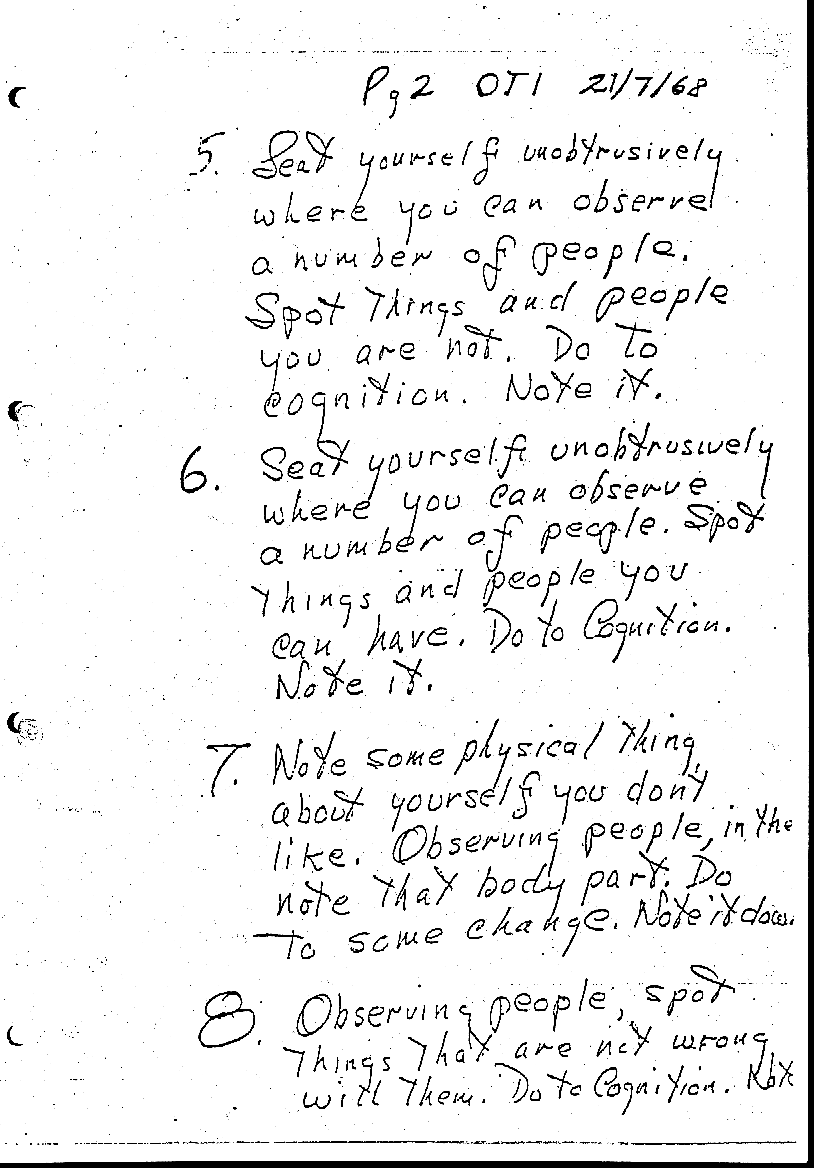 Pg 2 OT1 21/7/68
5. Seat yourself unobtrusively
where you can observe
a number of people.
Spot things and people
you are not. Do to
cognition. Note it.
6. Seat yourself unobtrusively
where you can observe
a number of people. Spot
things and people you
can have. Do to Cognition.
Note it.
7. Note some physical thing
about yourself you don't
like. Observing people, in the
note that body part. Do
to some change. Note it down.
8. Observing people, spot
things that are not wrong
with them. Do to Cognition.